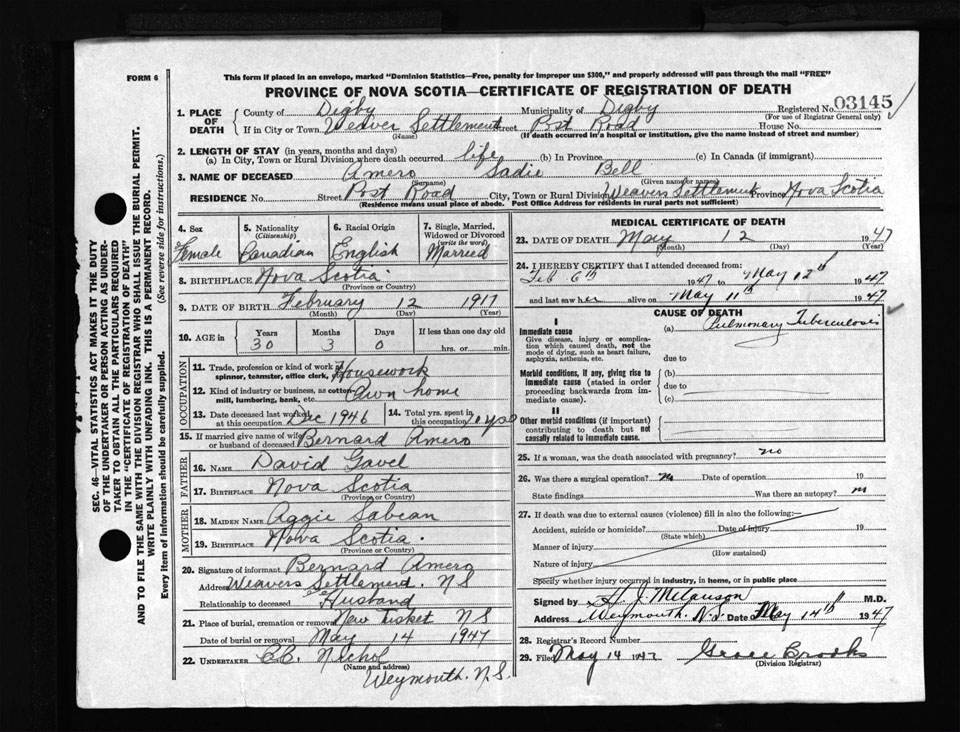 FORM 6
This form if placed in an envelope, marked "Dominion Statistics—Free, penalty for improper use $300," and properly addressed will pass through the mail "FREE"
PROVINCE OF NOVA SCOTIA—CERTIFICATE OF REGISTRATION OF DEATH
1. PLACE OF DEATH County of Digby Municipality of Digby Registered No. 03145
(For use of Registrar General only)
If in City or Town Weaver Settlement Street Post Road House No.
(Name) (If death occurred in a hospital or institution, give the name instead of street and number)
2. LENGTH OF STAY (in years, months and days)
(a) In City, Town or Rural Division where death occurred life (b) In Province (c) In Canada (if immigrant)
3. NAME OF DECEASED Amero Sadie Bell
(Surname) (Given name or names)
RESIDENCE No. Street Post Road City, Town or Rural Division Weavers Settlement Province Nova Scotia
(Residence means usual place of abode. Post Office Address for residents in rural parts not sufficient)
4. Sex 5. Nationality (Citizenship) 6. Racial Origin 7. Single, Married, Widowed or Divorced (write the word)
Female Canadian English Married
8. BIRTHPLACE Nova Scotia
(Province or Country)
9. DATE OF BIRTH February 12 1917
(Month) (Day) (Year)
10. AGE in Years Months Days If less than one day old
30 3 0 hrs. or min.
OCCUPATION
11. Trade, profession or kind of work as spinner, teamster, office clerk, etc. Housework
12. Kind of industry or business, as cotton-mill, lumbering, bank, etc. Own home
13. Date deceased last worked at this occupation Dec 1946 14. Total yrs. spent in this occupation 10 yrs
15. If married give name of wife or husband of deceased Bernard Amero
FATHER
16. NAME David Gavel
17. BIRTHPLACE Nova Scotia
(Province or Country)
MOTHER
18. MAIDEN NAME Aggie Sabean
19. BIRTHPLACE Nova Scotia.
(Province or Country)
20. Signature of informant Bernard Amero
Address Weavers Settlement. N S
Relationship to deceased Husband
21. Place of burial, cremation or removal New Tusket N S
Date of burial or removal May 14 1947
22. UNDERTAKER C.C. Nichol
(Name and address)
Weymouth. N.S.
MEDICAL CERTIFICATE OF DEATH
23. DATE OF DEATH May 12 1947
(Month) (Day) (Year)
24. I HEREBY CERTIFY that I attended deceased from:
Feb 6th 1947 to May 12th 1947
and last saw her alive on May 11th 1947
CAUSE OF DEATH
I
Immediate cause (a) Pulmonary Tuberculosis
Give disease, injury or complication which caused death, not the mode of dying, such as heart failure, asphyxia, asthenia, etc.
due to
Morbid conditions, if any, giving rise to immediate cause (stated in order proceeding backwards from immediate cause).
(b)
due to
(c)
II
Other morbid conditions (if important) contributing to death but not causally related to immediate cause.
25. If a woman, was the death associated with pregnancy? no
26. Was there a surgical operation? no Date of operation 19
State findings Was there an autopsy? no
27. If death was due to external causes (violence) fill in also the following:—
Accident, suicide or homicide? Date of injury 19
(State which)
Manner of injury
(How sustained)
Nature of injury
Specify whether injury occurred in industry, in home, or in public place
Signed by M.D.
Address Weymouth N.S. Date May 14th 1947
28. Registrar's Record Number
29. Filed May 14 1947 Grace Brooks
(Division Registrar)
SEC. 46—VITAL STATISTICS ACT MAKES IT THE DUTY
OF THE UNDERTAKER OR PERSON ACTING AS UNDER-
TAKER TO OBTAIN ALL THE PARTICULARS REQUIRED
IN THE "CERTIFICATE OF REGISTRATION OF DEATH"
AND TO FILE THE SAME WITH THE DIVISION REGISTRAR WHO SHALL ISSUE THE BURIAL PERMIT.
WRITE PLAINLY WITH UNFADING INK. THIS IS A PERMANENT RECORD.
Every item of information should be carefully supplied. (See reverse side for instructions.)